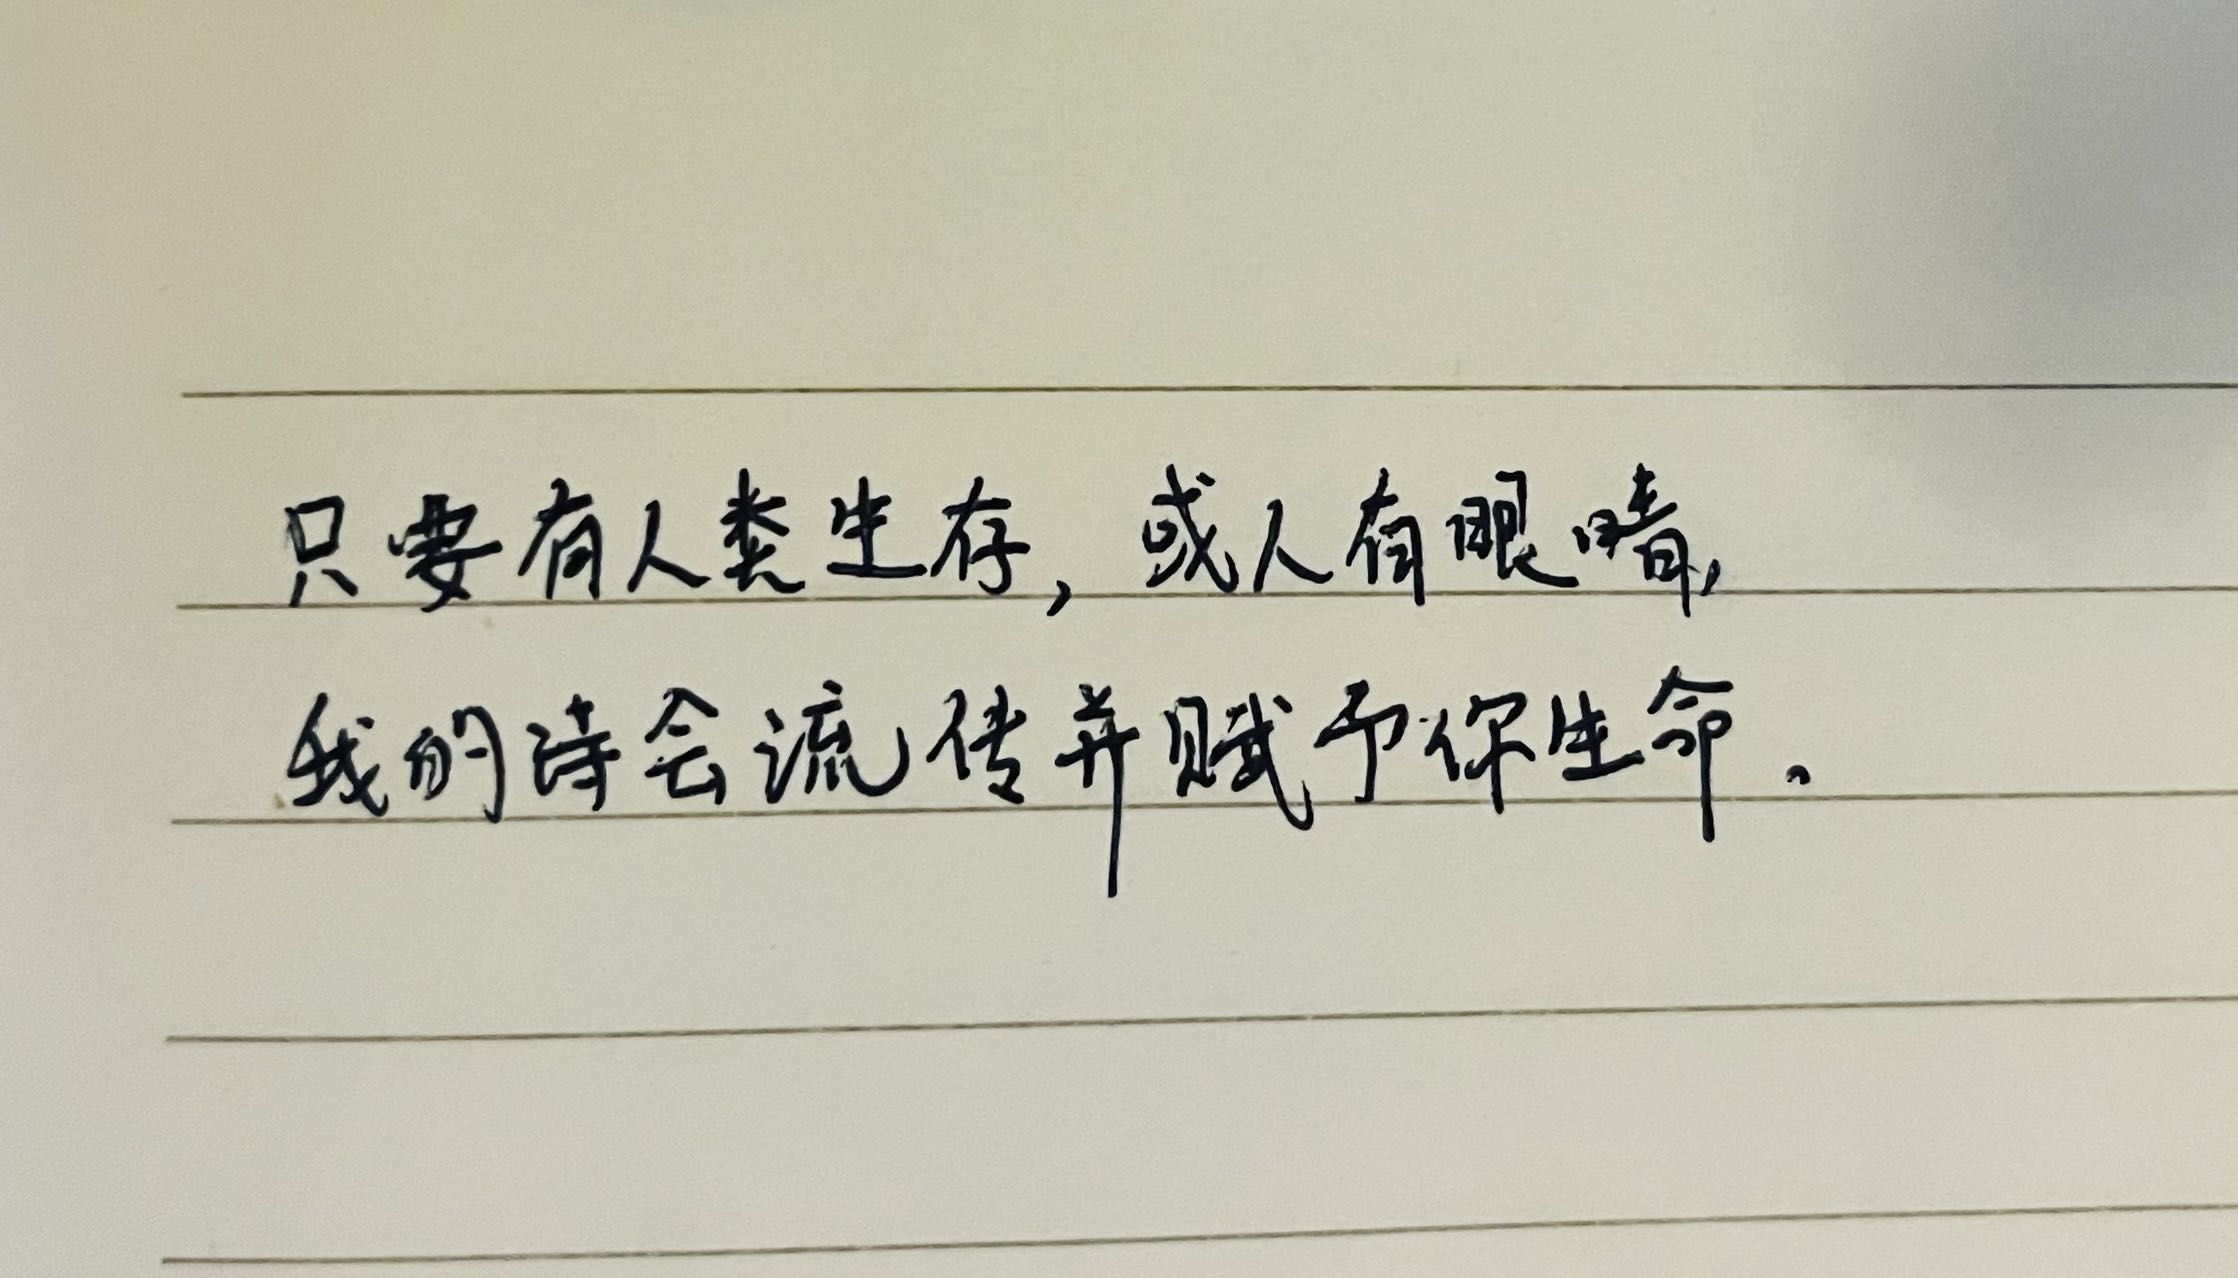 只要有人类生存，或人有眼睛，
我的诗会流传并赋予你生命。